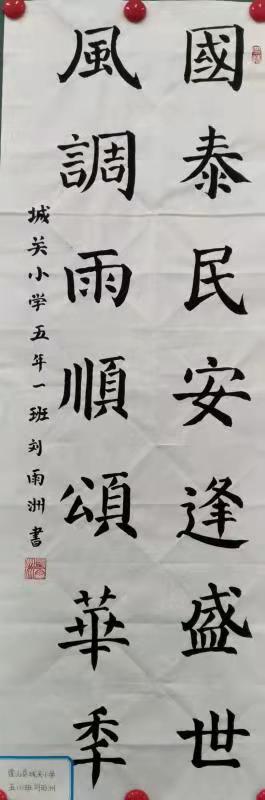 國泰民安逢盛世
風調雨順頌華秊
城关小学五年一班刘雨洲書
霍山县城关小学
五(1)班刘雨洲